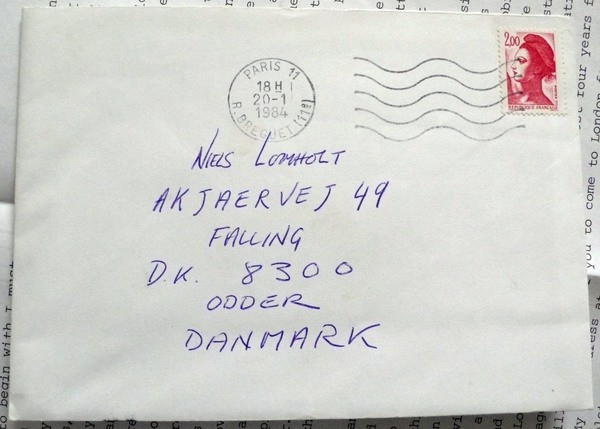 PARIS 11
18H
20-1
1984
R. BREGUET (11e)
2,00
RÉPUBLIQUE FRANÇAISE
NIELS LOMHOLT
AKJAERVEJ 49
FALLING
D.K. 8300
ODDER
DANMARK
to begin with I must
you to come to London f
last four years f